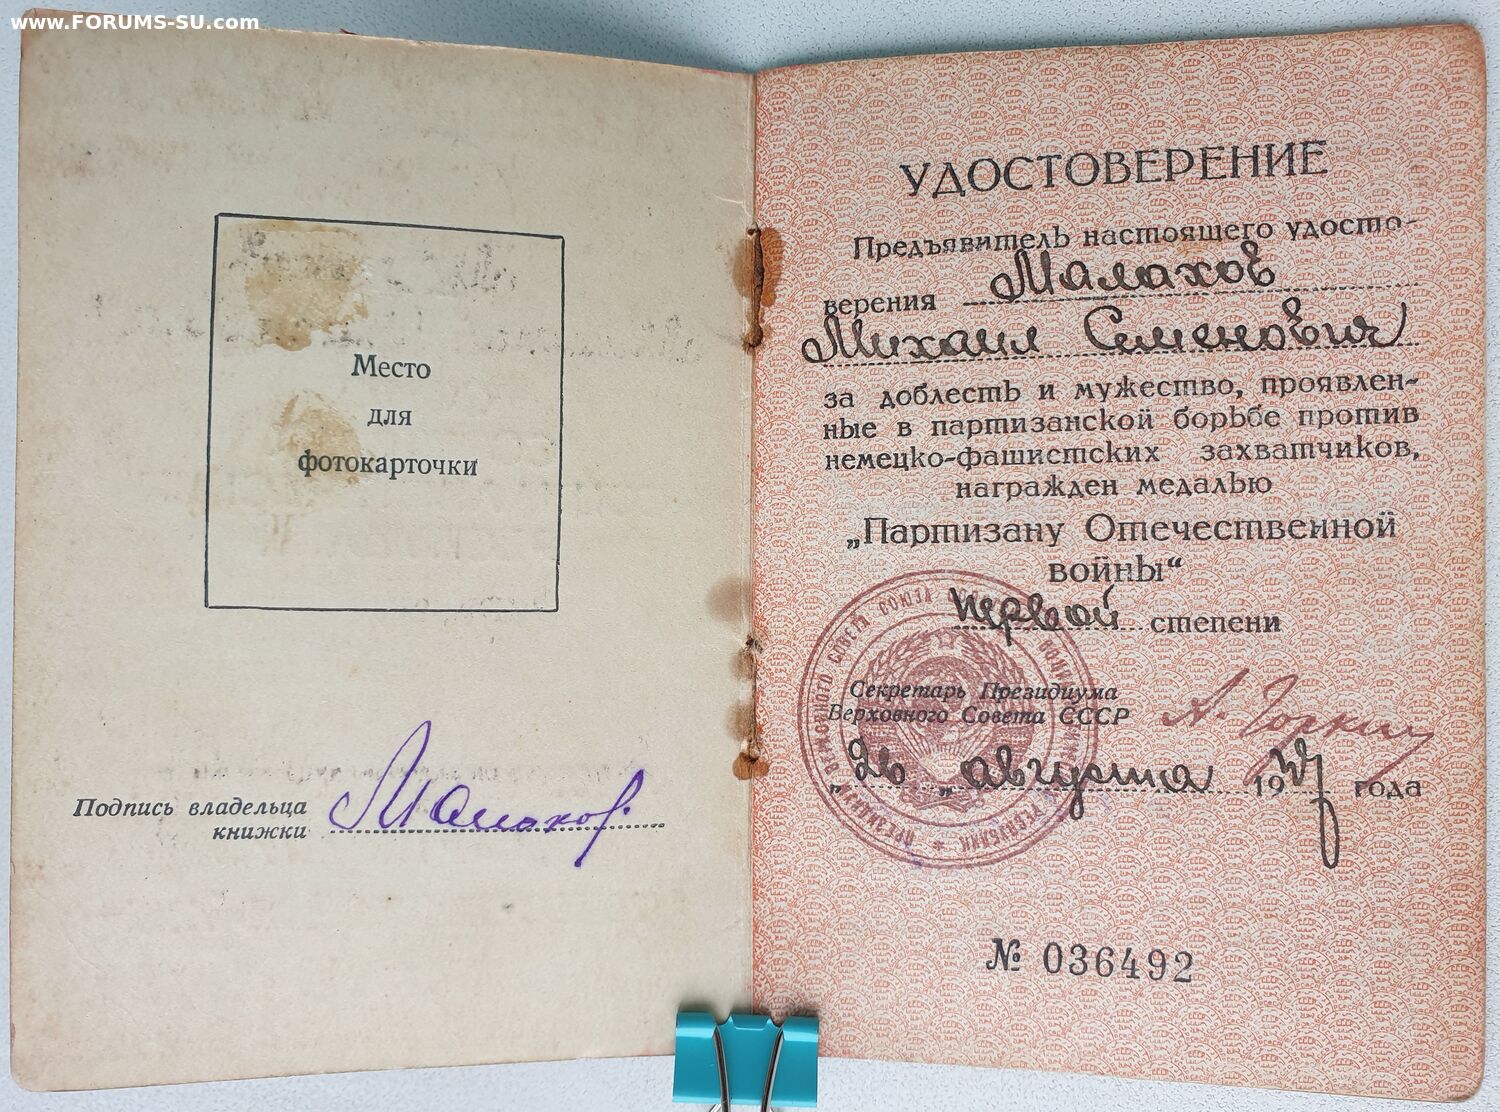 www.FORUMS-SU.com
Место
для
фотокарточки
Подпись владельца
книжки Малахов
УДОСТОВЕРЕНИЕ
Предъявитель настоящего удосто-
верения Малахов
Михаил Семенович
за доблесть и мужество, проявлен-
ные в партизанской борьбе против
немецко-фашистских захватчиков,
награжден медалью
„Партизану Отечественной
войны“
первой степени
Секретарь Президиума
Верховного Совета СССР А. Горкин
„26„ августа 19 года
№ 036492